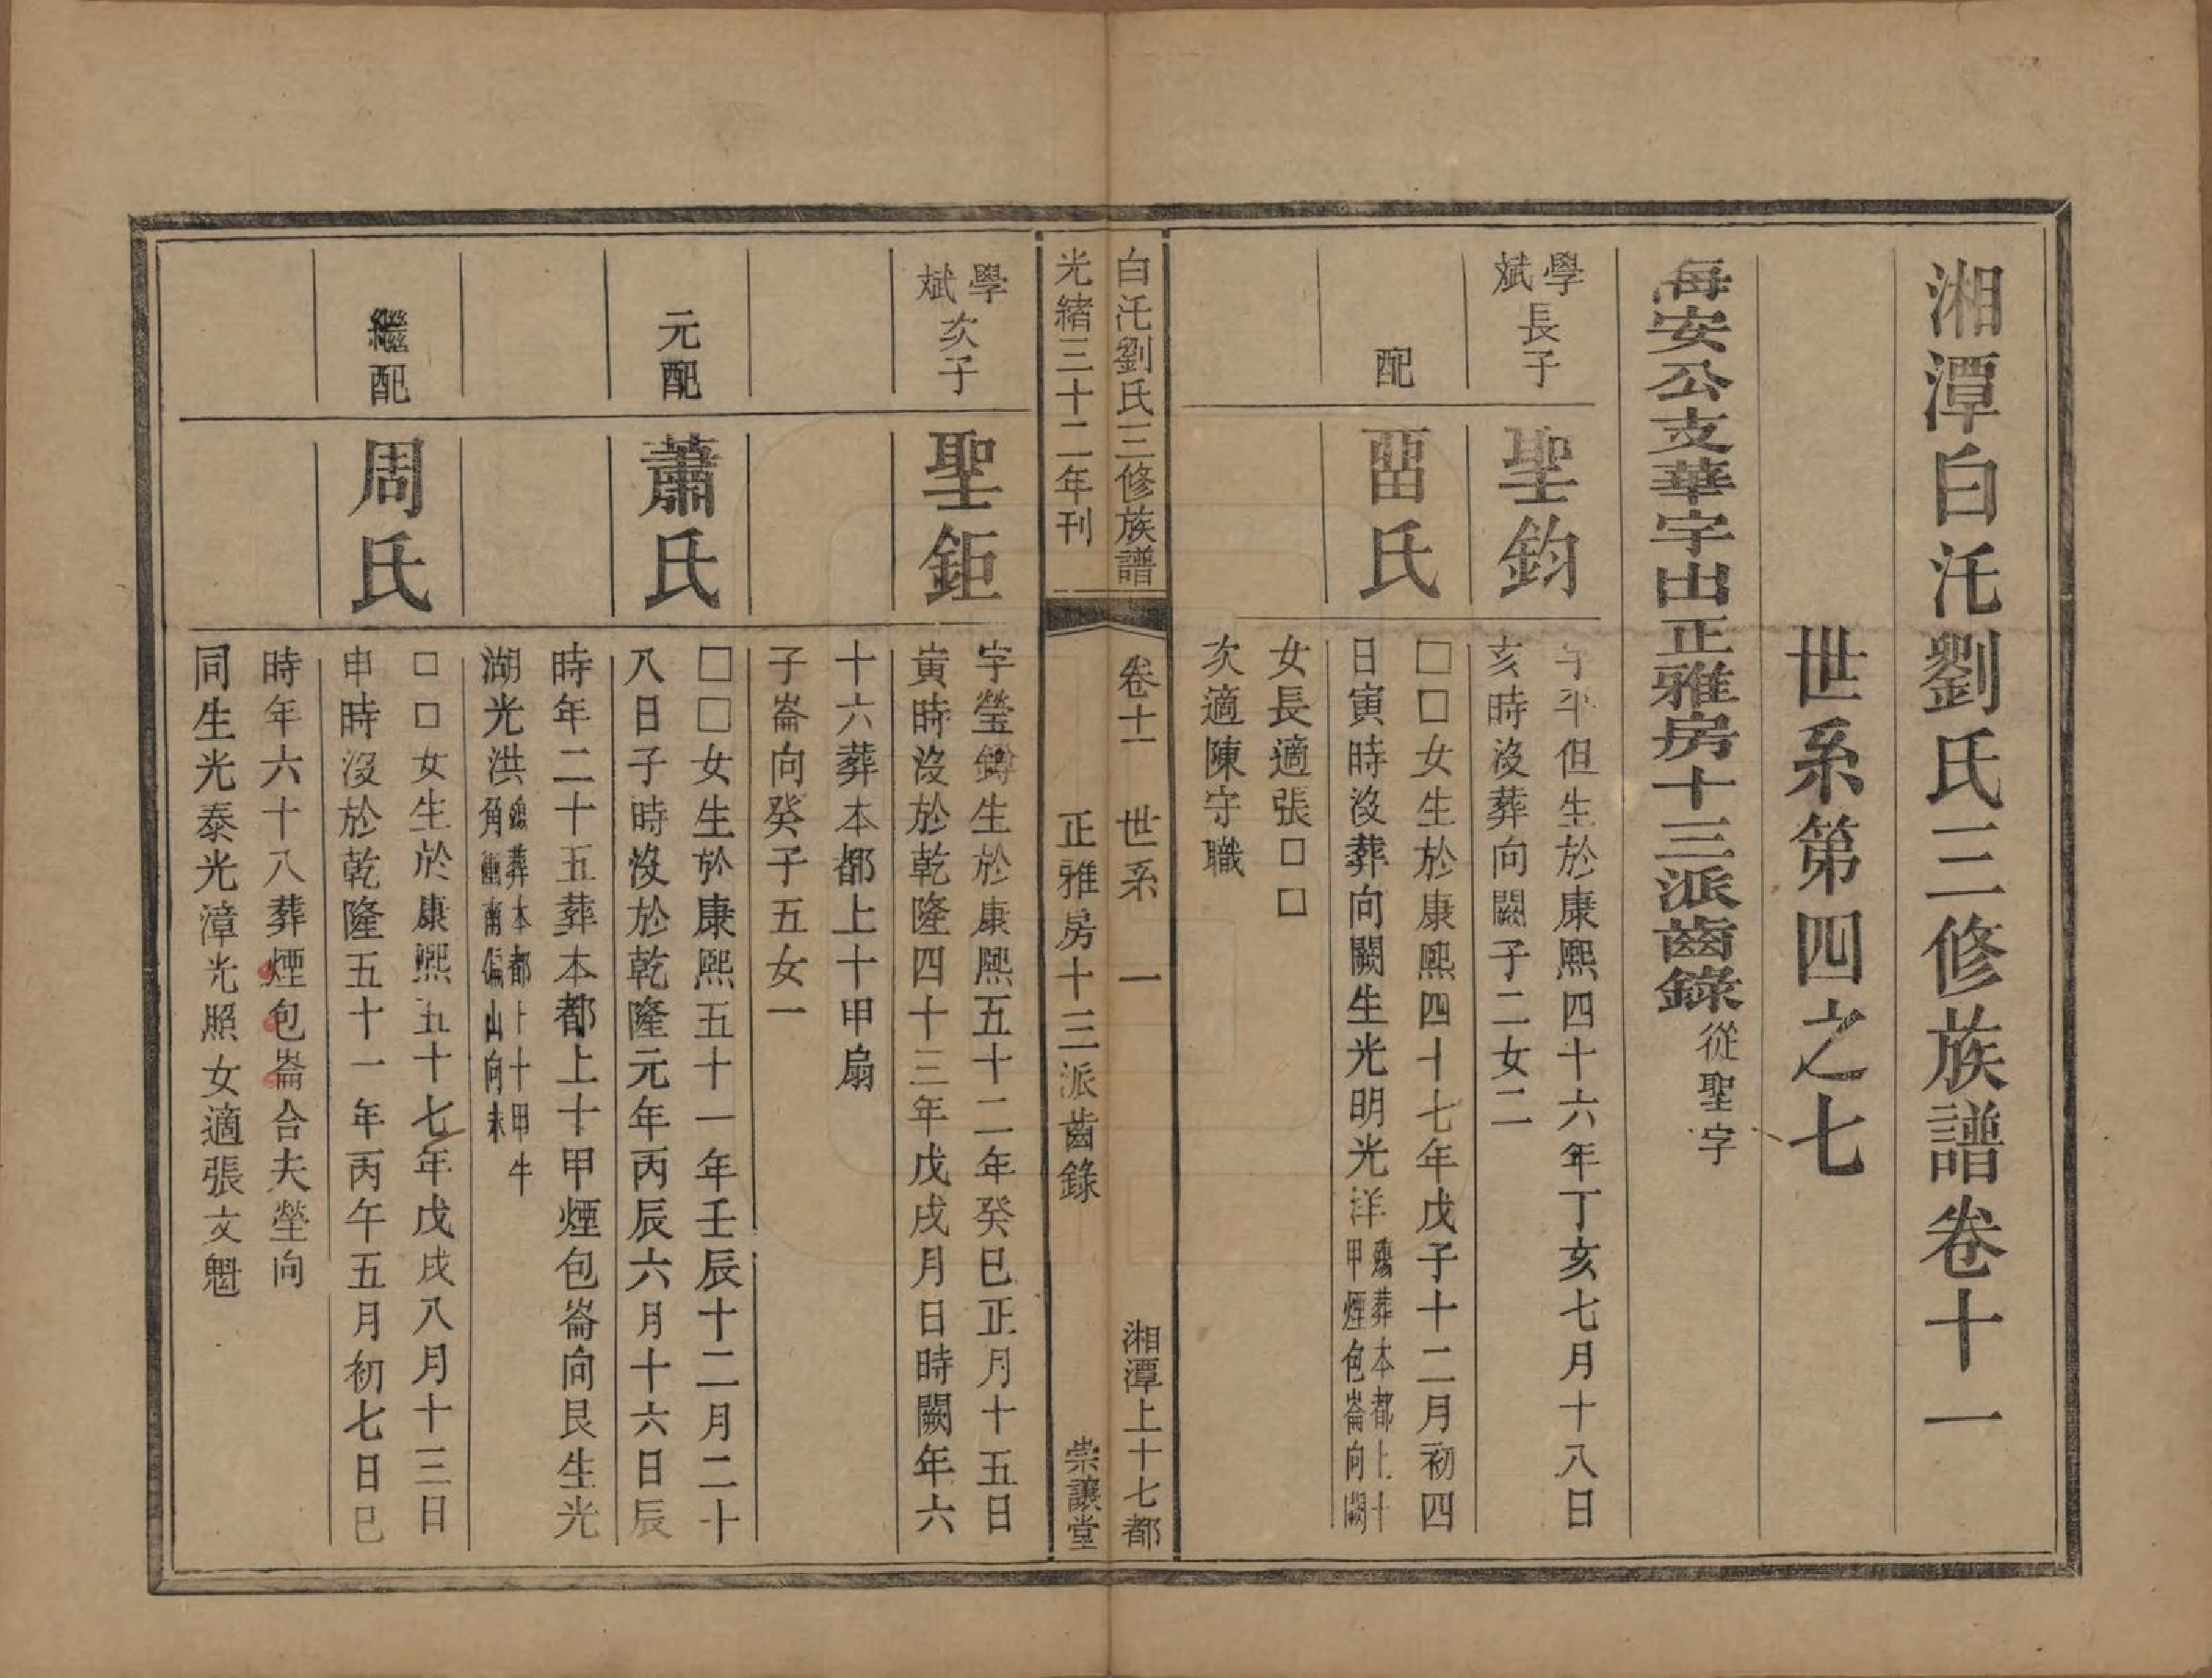 湘潭白汑劉氏三修族譜卷十一
世系第四之七
海安公支華字出正雅房十三派齒錄 從聖字
學斌長子
聖鈞
字平但生於康熙四十六年丁亥七月十八日
亥時沒葬向闕子二女二
配
畱氏
□□女生於康熙四十七年戊子十二月初四
日寅時沒葬向闕生光明光洋 殤葬本都上十甲煙包崙向闕
女長適張□□
次適陳守職
白汑劉氏三修族譜
卷十一 世系 一
湘潭上十七都
光緒三十二年刊
正雅房十三派齒錄
崇讓堂
學斌次子
聖鉅
字瑩鐏生於康熙五十二年癸巳正月十五日
寅時沒於乾隆四十三年戊戌月日時闕年六
十六葬本都上十甲扇
子崙向癸子五女一
元配
蕭氏
□□女生於康熙五十一年壬辰十二月二十
八日子時沒於乾隆元年丙辰六月十六日辰
時年二十五葬本都上十甲煙包崙向艮生光
湖光洪 殤葬本都上十甲牛角衝南偏山向未
繼配
周氏
□□女生於康熙五十七年戊戌八月十三日
申時沒於乾隆五十一年丙午五月初七日巳
時年六十八葬煙包崙合夫塋向
同生光泰光漳光照女適張文魁